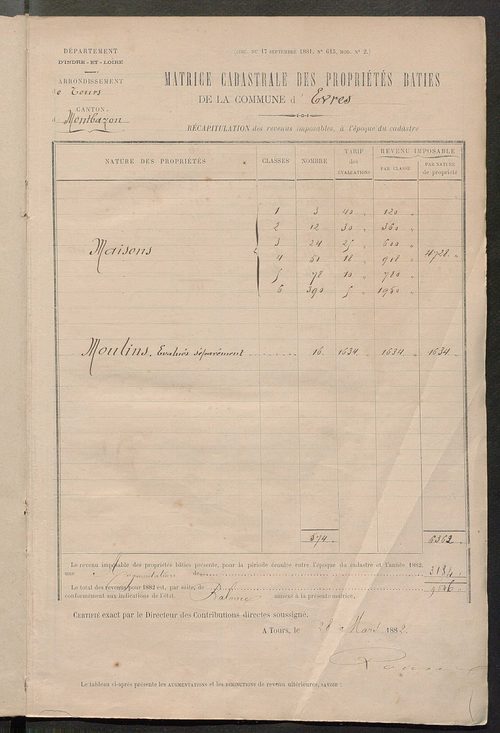 DÉPARTEMENT
D'INDRE-ET-LOIRE
ARRONDISSEMENT
de Tours
CANTON
d Montbazon
(CIRC. DU 17 SEPTEMBRE 1881, N° 615, MOD. N° 2.)
MATRICE CADASTRALE DES PROPRIÉTÉS BATIES
DE LA COMMUNE d'Evres
RÉCAPITULATION des revenus imposables, à l'époque du cadastre
NATURE DES PROPRIÉTÉS CLASSES NOMBRE TARIF des ÉVALUATIONS REVENU IMPOSABLE
PAR CLASSE PAR NATURE de propriété
1 3 40 120
2 12 30 360
3 24 25 600
Maisons 4728
4 18
5 78 10 780
6 390 5 1950
Moulins. Evalués séparément 16 1634 1634 1634
6362
Le revenu imposable des propriétés bâties présente, pour la période écoulée entre l'époque du cadastre et l'année 1882,
une Augmentation de 3184
Le total des revenus pour 1882 est, par suite, de
conformément aux indications de l'état, Balance annexé à la présente matrice.
CERTIFIÉ exact par le Directeur des Contributions directes soussigné.
A TOURS, le 28 Mars 1882.
Le tableau ci-après présente les AUGMENTATIONS et les DIMINUTIONS de revenu ultérieures, SAVOIR :